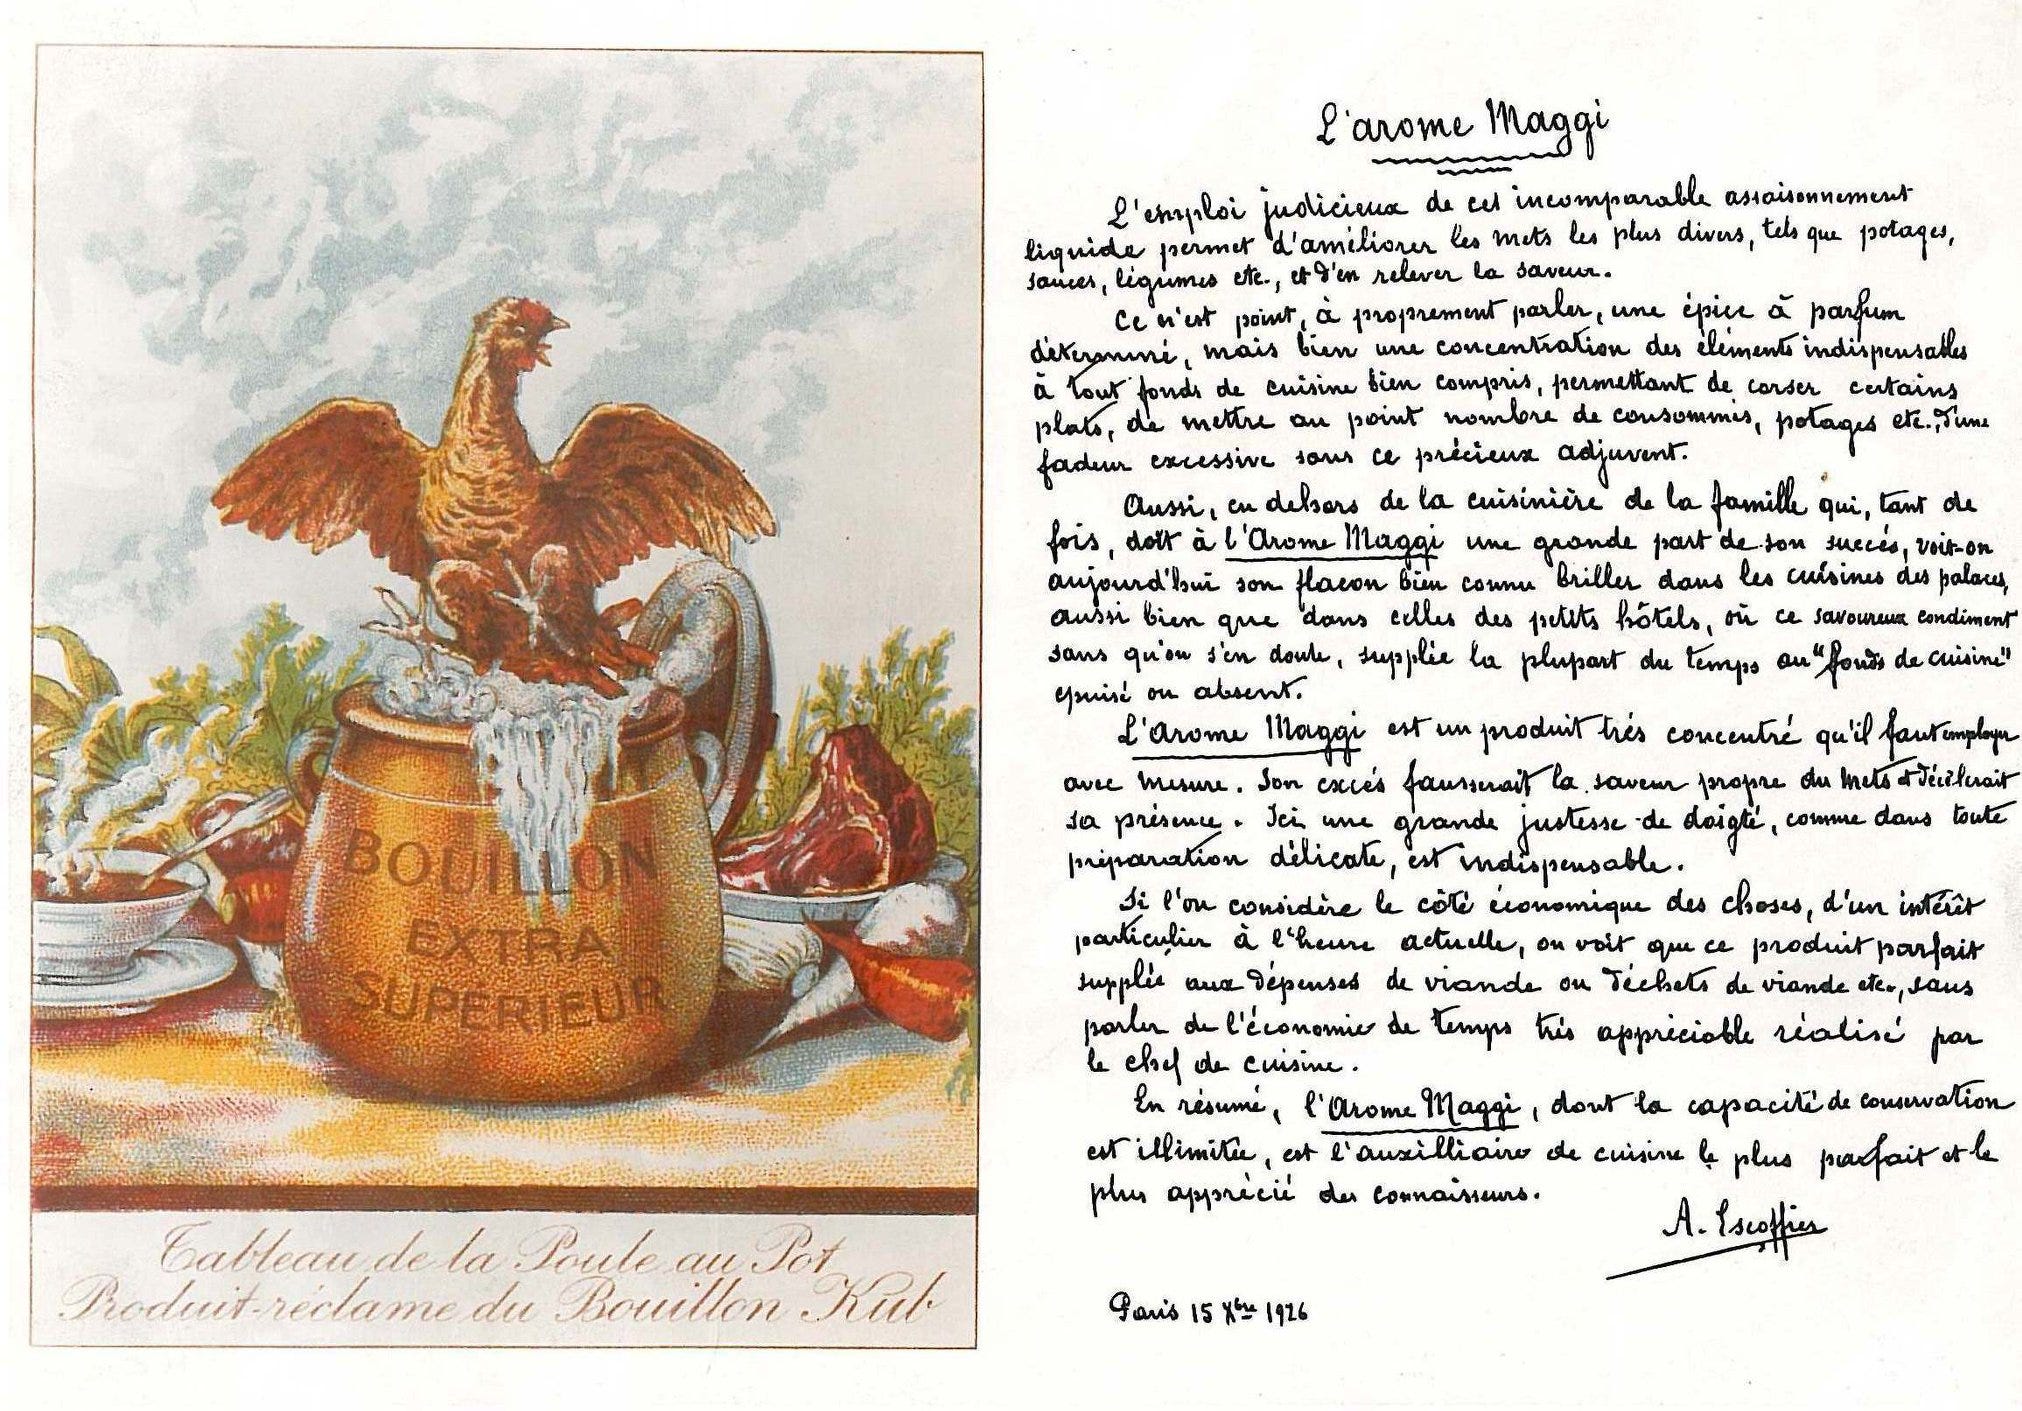 BOUILLON
EXTRA
SUPÉRIEUR
Tableau de la Poule au Pot
Produit-réclame du Bouillon Kub
L'arome Maggi
L'emploi judicieux de cet incomparable assaisonnement
liquide permet d'améliorer les mets les plus divers, tels que potages,
sauces, légumes etc., et d'en relever la saveur.
Ce n'est point, à proprement parler, une épice à parfum
déterminé, mais bien une concentration des éléments indispensables
à tout fonds de cuisine bien compris, permettant de corser certains
plats, de mettre au point nombre de consommés, potages etc., d'une
fadeur excessive sans ce précieux adjuvent.
Aussi, en dehors de la cuisinière de la famille qui, tant de
fois, doit à l'Arome Maggi une grande part de son succés, voit-on
aujourd'hui son flacon bien connu briller dans les cuisines des palaces,
aussi bien que dans celles des petits hôtels, où ce savoureux condiment
sans qu'on s'en doute, supplée la plupart du temps au "fonds de cuisine"
épuisé ou absent.
L'Arome Maggi est un produit trés concentré qu'il faut employer
avec mesure. Son excés fausserait la saveur propre du mets et décèlerait
sa présence. Ici une grande justesse de doigté, comme dans toute
préparation délicate, est indispensable.
Si l'on considère le côté économique des choses, d'un intérêt
particulier à l'heure actuelle, on voit que ce produit parfait
supplée aux dépenses de viande ou déchets de viande etc., sans
parler de l'économie de temps trés appréciable réalisé par
le chef de cuisine.
En résumé, l'Arome Maggi, dont la capacité de conservation
est illimitée, est l'auxilliaire de cuisine le plus parfait et le
plus apprécié des connaisseurs.
A. Escoffier
Paris 15 Xbre 1926